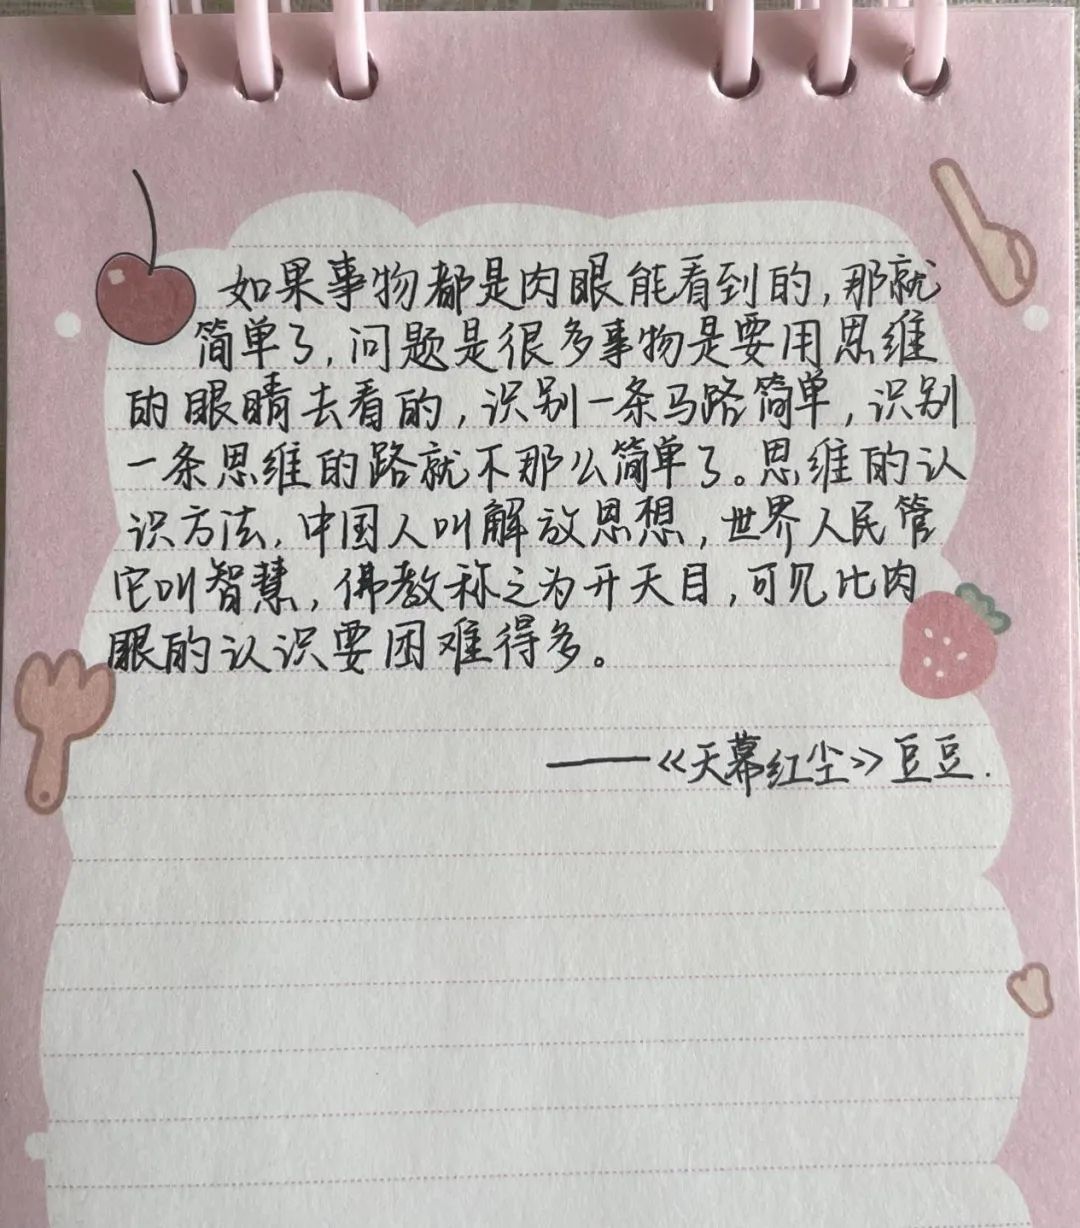 如果事物都是肉眼能看到的,那就
简单了,问题是很多事物是要用思维
的眼睛去看的,识别一条马路简单,识别
一条思维的路就不那么简单了。思维的认
识方法,中国人叫解放思想,世界人民管
它叫智慧,佛教称之为开天目,可见比肉
眼的认识要困难得多。
——《天幕红尘》豆豆.